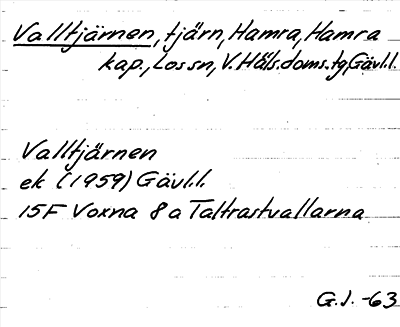 Valltjärnen, tjärn, Hamra, Hamra
kap., Los sn, V. Häls. doms. tg, Gävl.l.
Valltjärnen
ek (1959) Gävl.l.
15F Voxna 8 a Taltrastvallarna
G.J. -63